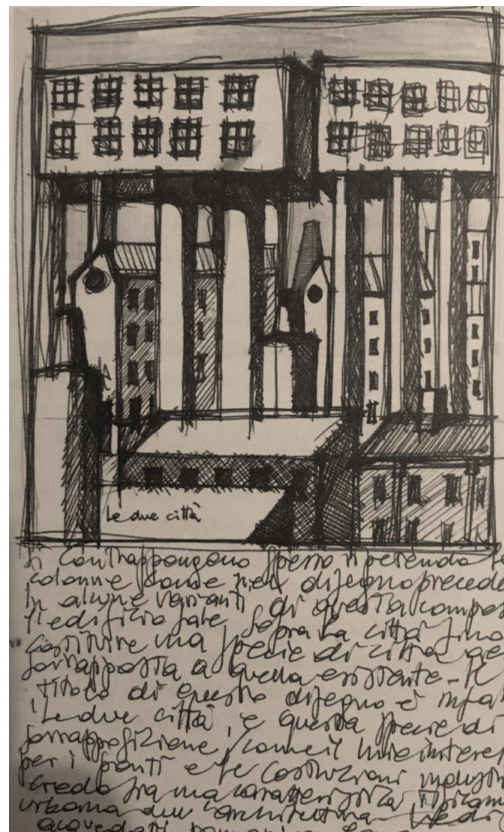 Le due città
si contrappongono spesso ripetendo le
colonne come nel disegno precede
In alcune varianti di questa compos
l'edificio sale sopra la città fino
costituire una specie di città ae
sovrapposta a quella esistente - Il
titolo di questo disegno è infat
"Le due città", e questa specie di
sovrapposizione, come il mio interes
per i ponti e le costruzioni industri
credo sia una caratteristica
urbana dell'architettura
acquedotti romani